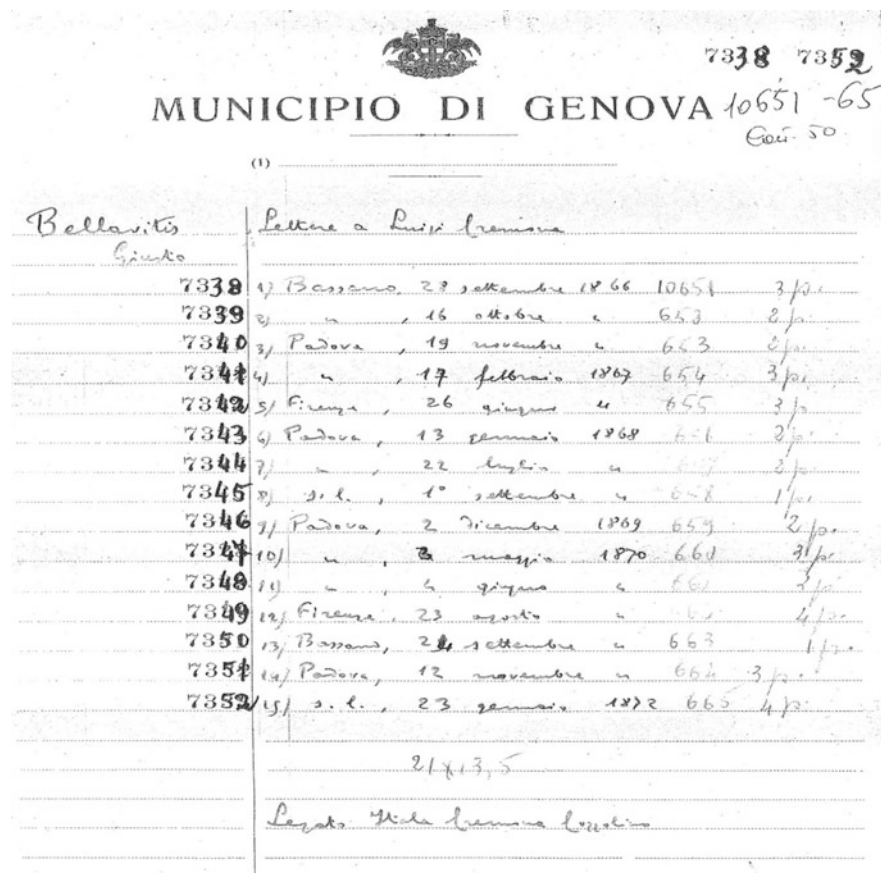 7338 7352
MUNICIPIO DI GENOVA 10651 -65
50
(1)
Bellavitis Lettere a Luigi Cremona
Giusto
7338 1) Bassano, 28 settembre 1866 10651 3 p.
7339 2) " , 16 ottobre " 653 2 p.
7340 3) Padova , 19 novembre " 653 2 p.
7341 4) " , 17 febbraio 1867 654 3 p.
7342 5) Firenze , 26 giugno " 655 3 p.
7343 6) Padova , 13 gennaio 1868 2 p.
7344 7) " , 22 luglio " 2 p.
7345 8) s. l. , 1° settembre " 658 1 p.
7346 9) Padova, 2 dicembre 1869 659 2 p.
7347 10) " , maggio 1870 660 3 p.
7348 11) " , 4 giugno " 661
7349 12) Firenze, 23 agosto " 4 p.
7350 13) Bassano, 24 settembre " 663 1 p.
7351 14) Padova, 12 novembre " 664 3 p.
7352 15) s. l. , 23 gennaio 1872 665 4 p.
21 x 13,5
Legato Itala Cremona Cozzolino